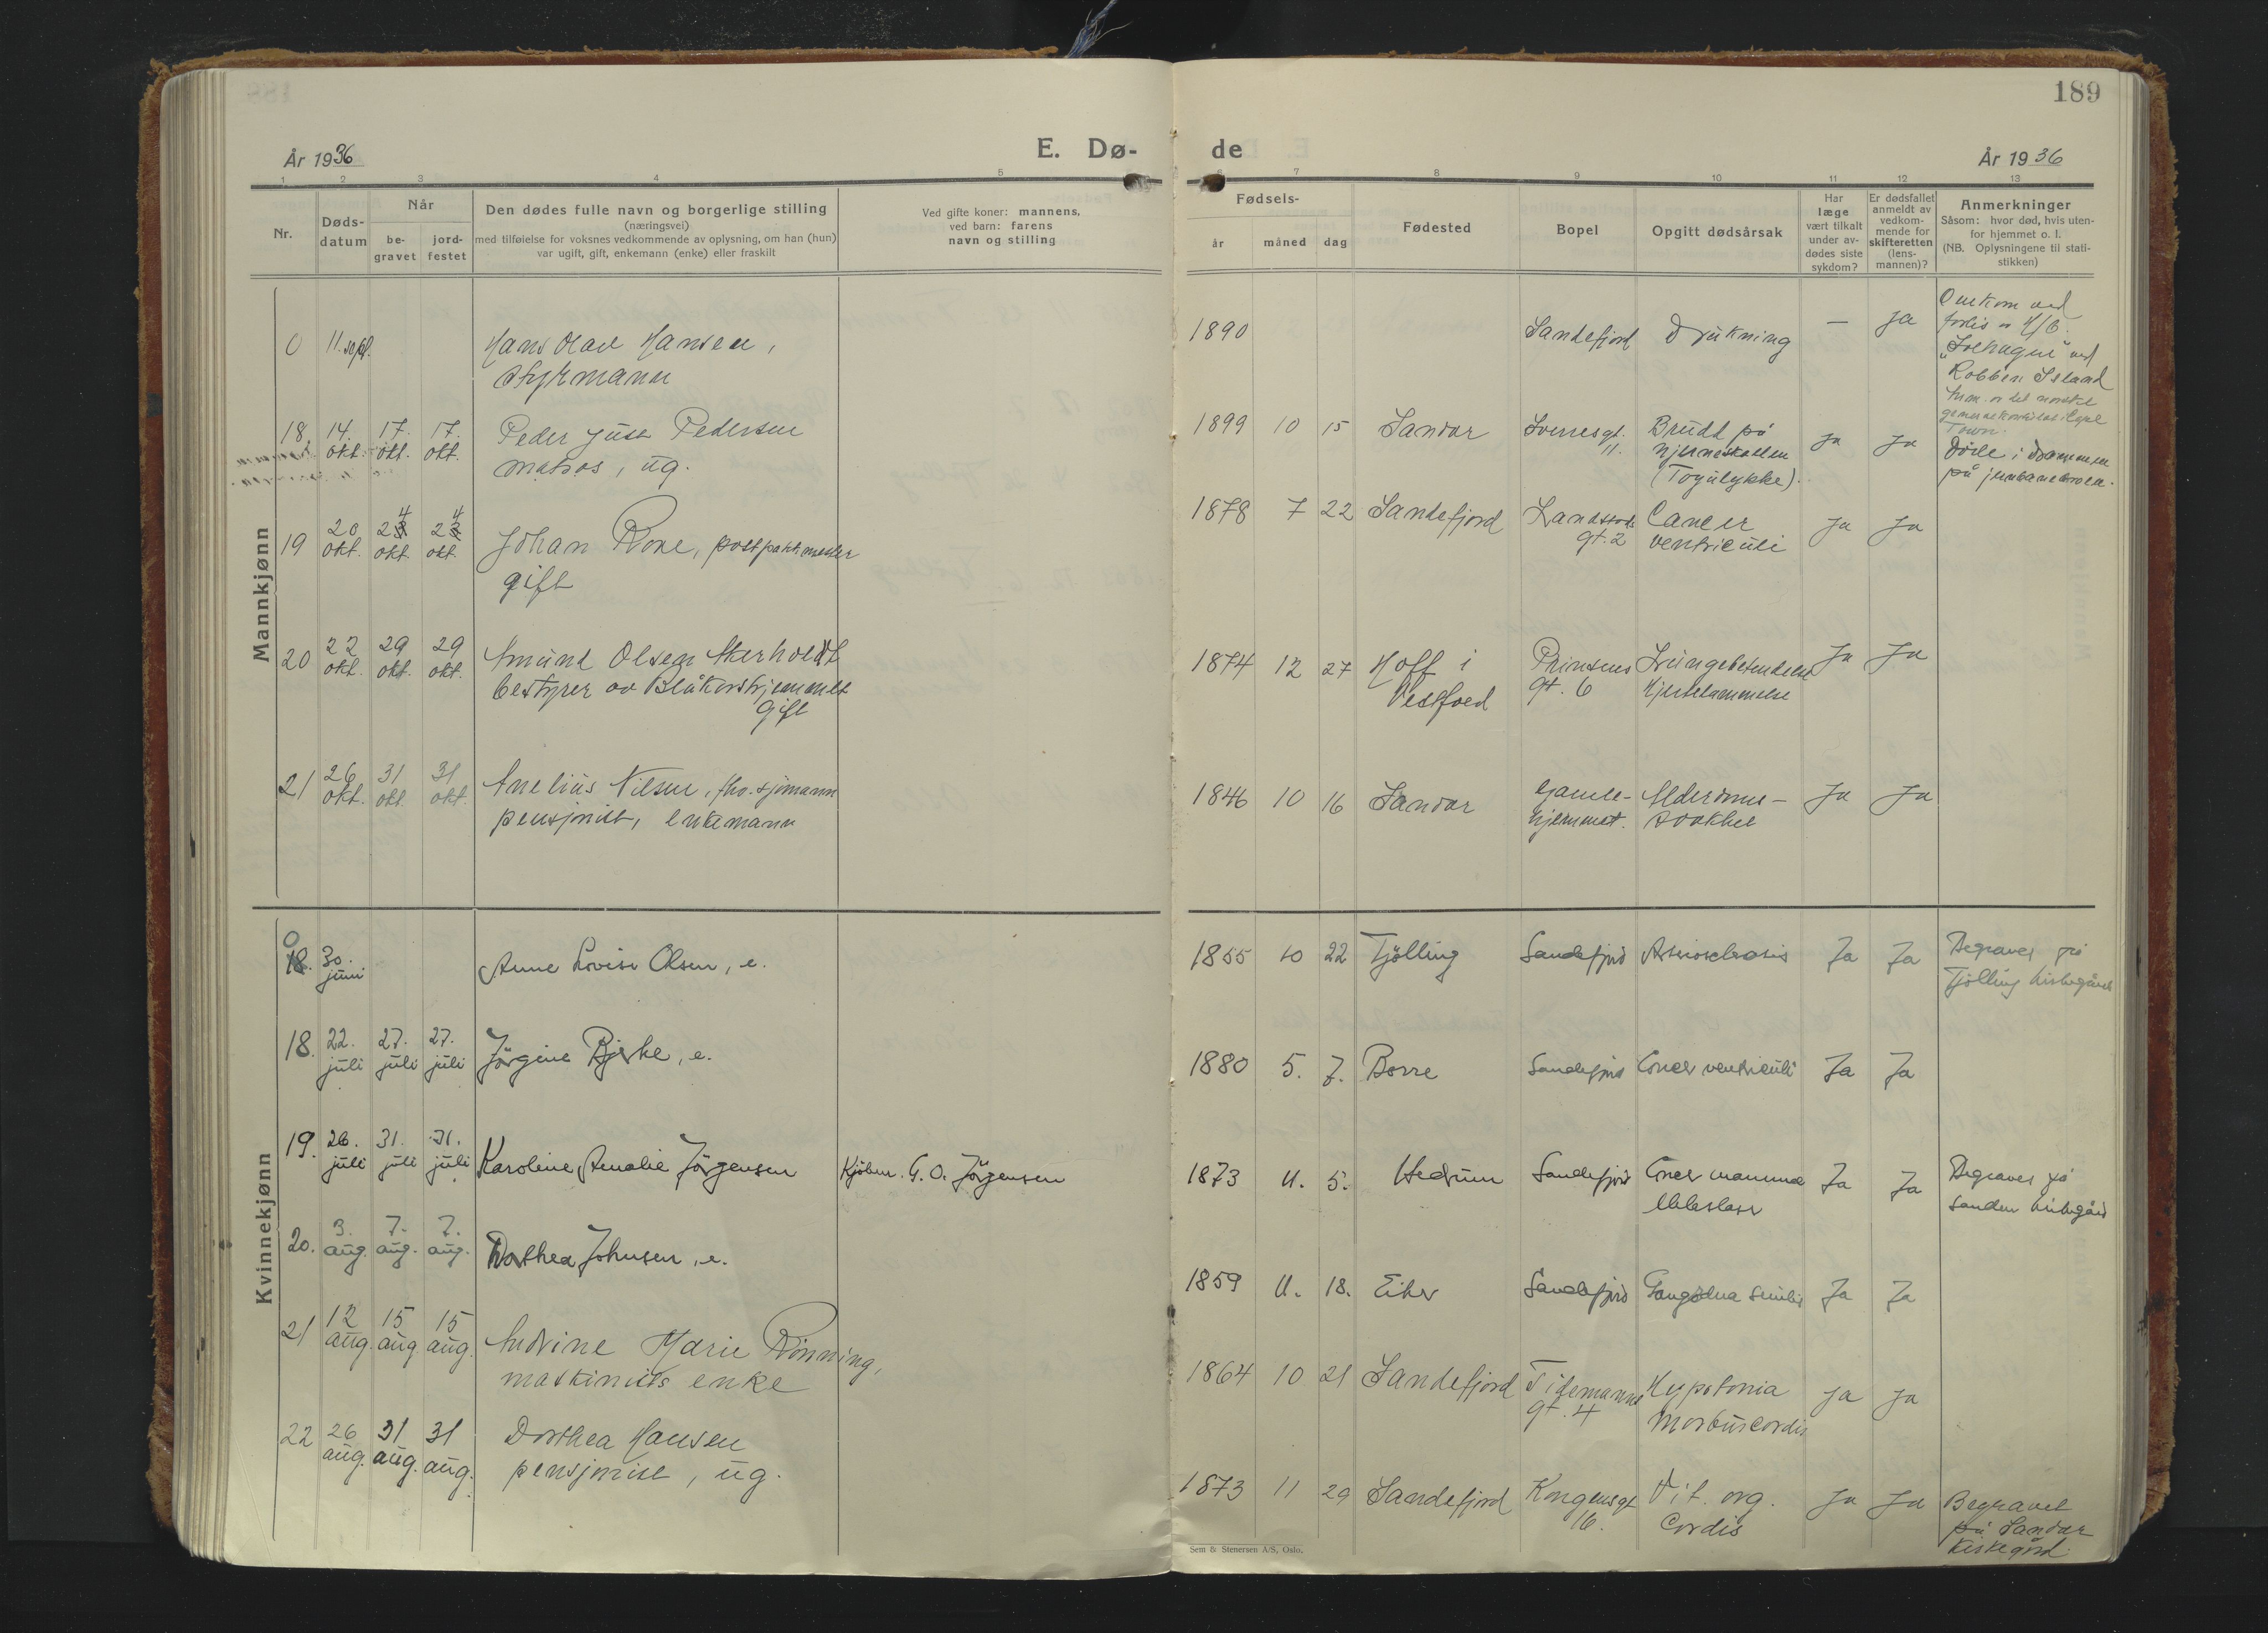 189
E. Dø-
de
År 1936
År 1936
1 2 3 4 5 6 7 8 9 10 11 12 13
Nr.
Døds-
datum
Når
be-
gravet
jord-
festet
Den dødes fulle navn og borgerlige stilling
(næringsvei)
med tilføielse for voksnes vedkommende av oplysning, om han (hun)
var ugift, gift, enkemann (enke) eller fraskilt
Ved gifte koner: mannens,
ved barn: farens
navn og stilling
Fødsels-
år måned dag
Fødested
Bopel
Opgitt dødsårsak
Har
læge
vært tilkalt
under av-
dødes siste
sykdom?
Er dødsfallet
anmeldt av
vedkom-
mende for
skifteretten
(lens-
mannen)?
Anmerkninger
Såsom: hvor død, hvis uten-
for hjemmet o. l.
(NB. Oplysningene til stati-
stikken)
Mannkjønn
0 11. sept.
Hans Olav Hansen,
styrmann
1890 Sandefjord Drukning — ja
Omkom ved
forlis
ved
Robben Island
18 14. okt. 17. okt. 17. okt.
Peder Juse Pedersen
matros, ug.
1899 10 15 Sandar
11.
Brudd på
hjerneskallen
(Togulykke).
ja ja
Døde i Drammen
på
19 20 okt. 24 okt. 24 okt.
Johan Rove, postpakkmester
gift
1878 7 22 Sandefjord
gt. 2
Cancer
ventriculi
ja ja
20 22 okt. 29 okt. 29 okt.
Amund Olsen Akerholdt
bestyrer av Blåkorshjemmet
gift
1874 12 27 Hoff i
Vestfold
Prinsens
gt. 6
Lungebetendelse
Hjertelammelse
Ja Ja
21 26 okt. 31 okt. 31 okt.
Anelius Nilsen, fhv. sjømann
pensjonist, enkemann
1846 10 16 Sandar
Gamle-
hjemmet.
Alderdoms-
svakhet
Ja Ja
Kvinnekjønn
0
18. 30. juni
Anne Lovise Olsen, e.
1855 10 22 Tjølling Sandefjord Arteriosclerosis Ja Ja
Begravet på
Tjølling kirkegård
18. 22. juli 27. juli 27. juli
Jørgine Bjerke, e.
1880 5. 7. Borre Sandefjord Cancer ventriculi Ja Ja
19. 26. juli 31. juli 31. juli
Karoline Amalie Jørgensen
Kjøbm. G. O. Jörgensen
1873 11. 5. Hedrum Sandefjord Cancer mamma
Ja Ja
Begravet på
Sandar kirkegård
20. 3. aug. 7. aug. 7. aug.
Dorthea Johnsen, e.
1859 11. 18. Eiker Sandefjord Gangræna senilis Ja Ja
21 12 aug. 15 aug 15 aug.
Andrine Marie Rønning,
maskinists enke
1864 10 21 Sandefjord
Tidemanns
gt. 4
Hypotonia
Morbus cordis
ja ja
22 26 aug. 31 aug. 31 aug.
Dorthea Hansen
pensjonist, ug.
1873 11 29 Sandefjord
Kongensgt
16.
Vit. org.
Cordis
Ja Ja
Begravet
på Sandar
kirkegård.
Sem & Stenersen A/S, Oslo.